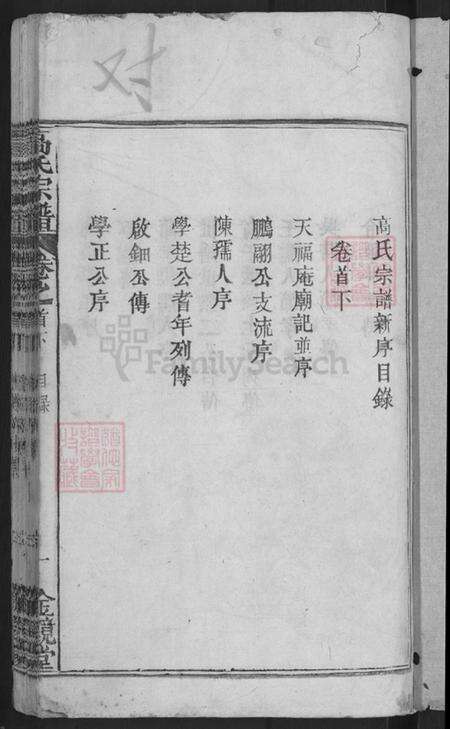 对
高氏宗譜新序目錄
卷首下
天福庵廟記並序
鵬翮公支流序
陳孺人序
學楚公耆年列傳
啟鈿公傳
學正公序
高氏宗譜
卷之一
首下
目錄
一
金鏡堂
FamilySearch